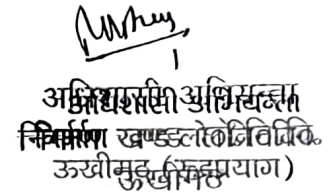 अधिशासी अभियन्ता
निर्माण खण्ड लो०नि०वि०
ऊखीमठ (रूद्रप्रयाग)